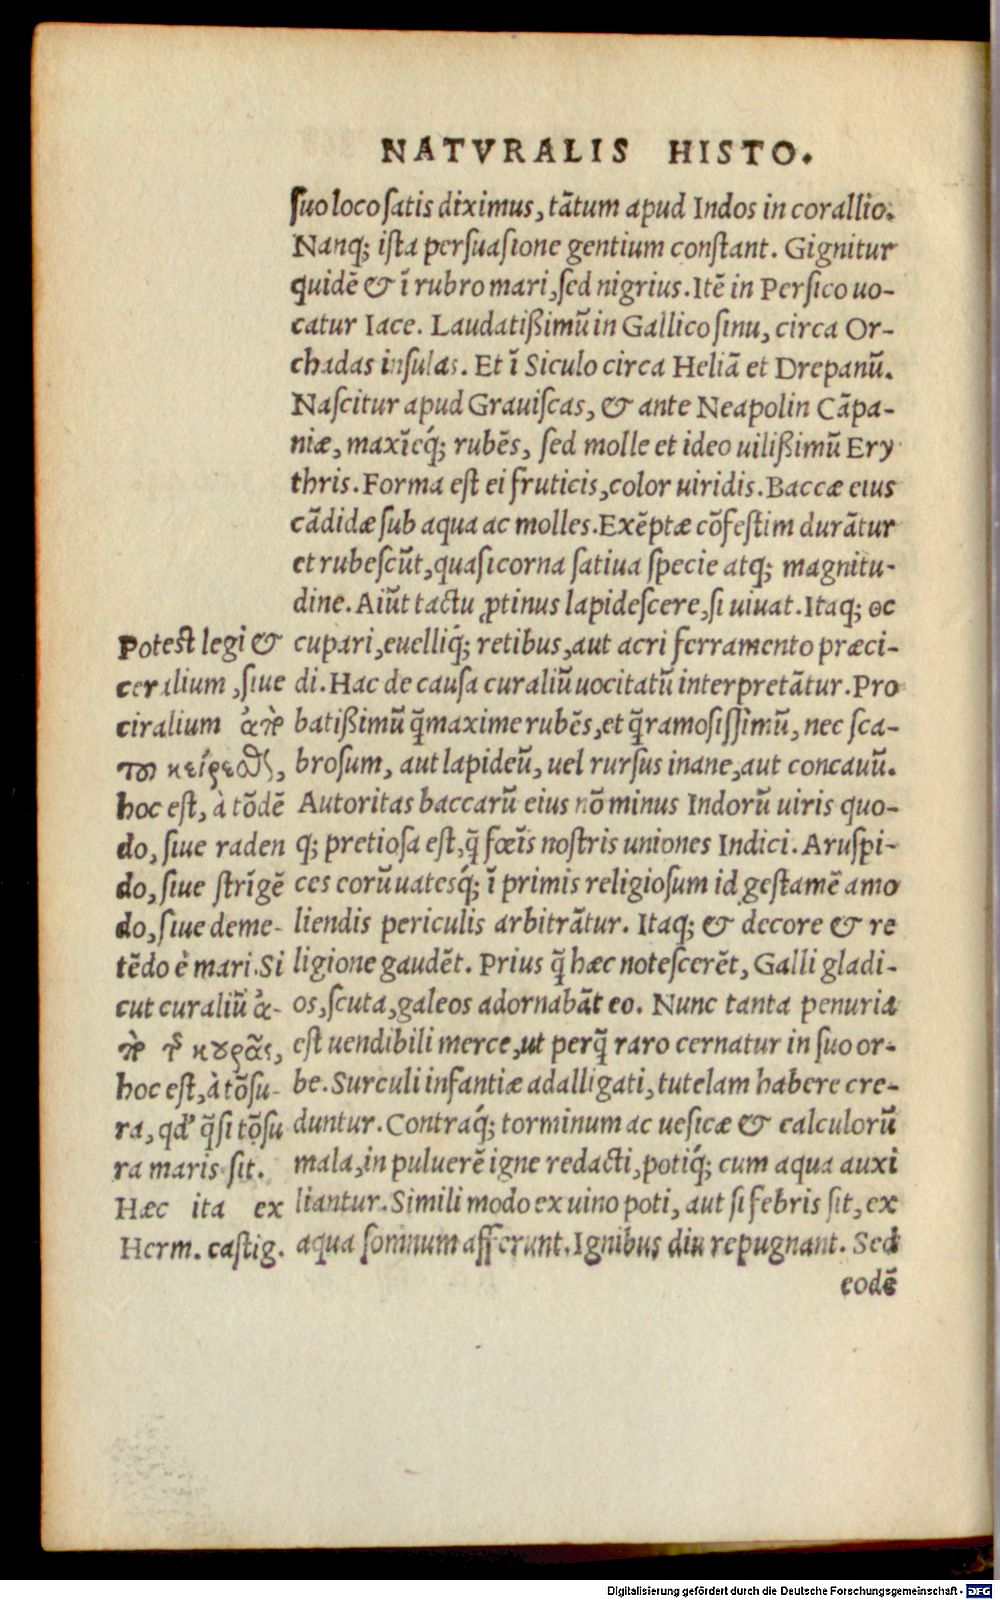 NATVRALIS HISTO.
suo loco satis diximus, tãtum apud Indos in corallio.
Nanq; ista persuasione gentium constant. Gignitur
quidẽ & ĩ rubro mari, sed nigrius. Itẽ in Persico uo-
catur Iace. Laudatißimũ in Gallico sinu, circa Or-
chadas insulas. Et ĩ Siculo circa Heliã et Drepanũ.
Nascitur apud Grauiscas, & ante Neapolin Cãpa-
niæ, maxĩeq́; rubẽs, sed molle et ideo uilißimũ Ery
thris. Forma est ei fruticis, color uiridis. Baccæ eius
cãdidæ sub aqua ac molles. Exẽptæ cõfestim durãtur
et rubescũt, quasi corna satiua specie atq; magnitu-
dine. Aiũt tactu ꝓtinus lapidescere, si uiuat. Itaq; oc
cupari, euelliq́; retibus, aut acri ferramento præci-
di. Hac de causa curaliũ uocitatũ interpretãtur. Pro
batißimũ q̃maxime rubẽs, et q̃ramosissimũ, nec sca-
brosum, aut lapideũ, uel rursus inane, aut concauũ.
Autoritas baccarũ eius nõ minus Indorũ uiris quo-
q; pretiosa est, q̃ fœĩs nostris uniones Indici. Aruspi-
ces eorũ uatesq́; ĩ primis religiosum id gestamẽ amo
liendis periculis arbitrãtur. Itaq; & decore & re
ligione gaudẽt. Prius q̃ hæc notescerẽt, Galli gladi-
os, scuta, galeos adornabãt eo. Nunc tanta penuria
est uendibili merce, ut perq̃ raro cernatur in suo or-
be. Surculi infantiæ adalligati, tutelam habere cre-
duntur. Contraq́; torminum ac uesicæ & calculorũ
mala, in puluerẽ igne redacti, potiq́; cum aqua auxi
liantur. Simili modo ex uino poti, aut si febris sit, ex
aqua somnum afferunt. Ignibus diu repugnant. Sed
eodẽ
Potest legi &
ceralium, siue
ciralium ἀπὸ
τοῦ κείρεσθαι,
hoc est, à tõdẽ
do, siue raden
do, siue strĩgẽ
do, siue deme-
tẽdo è mari. Si
cut curaliũ ἀ-
πὸ τῆς κουρᾶς,
hoc est, à tõsu-
ra, qd' q̃si tõsu
ra maris sit.
Hæc ita ex
Herm. castig.
Digitalisierung gefördert durch die Deutsche Forschungsgemeinschaft - DFG